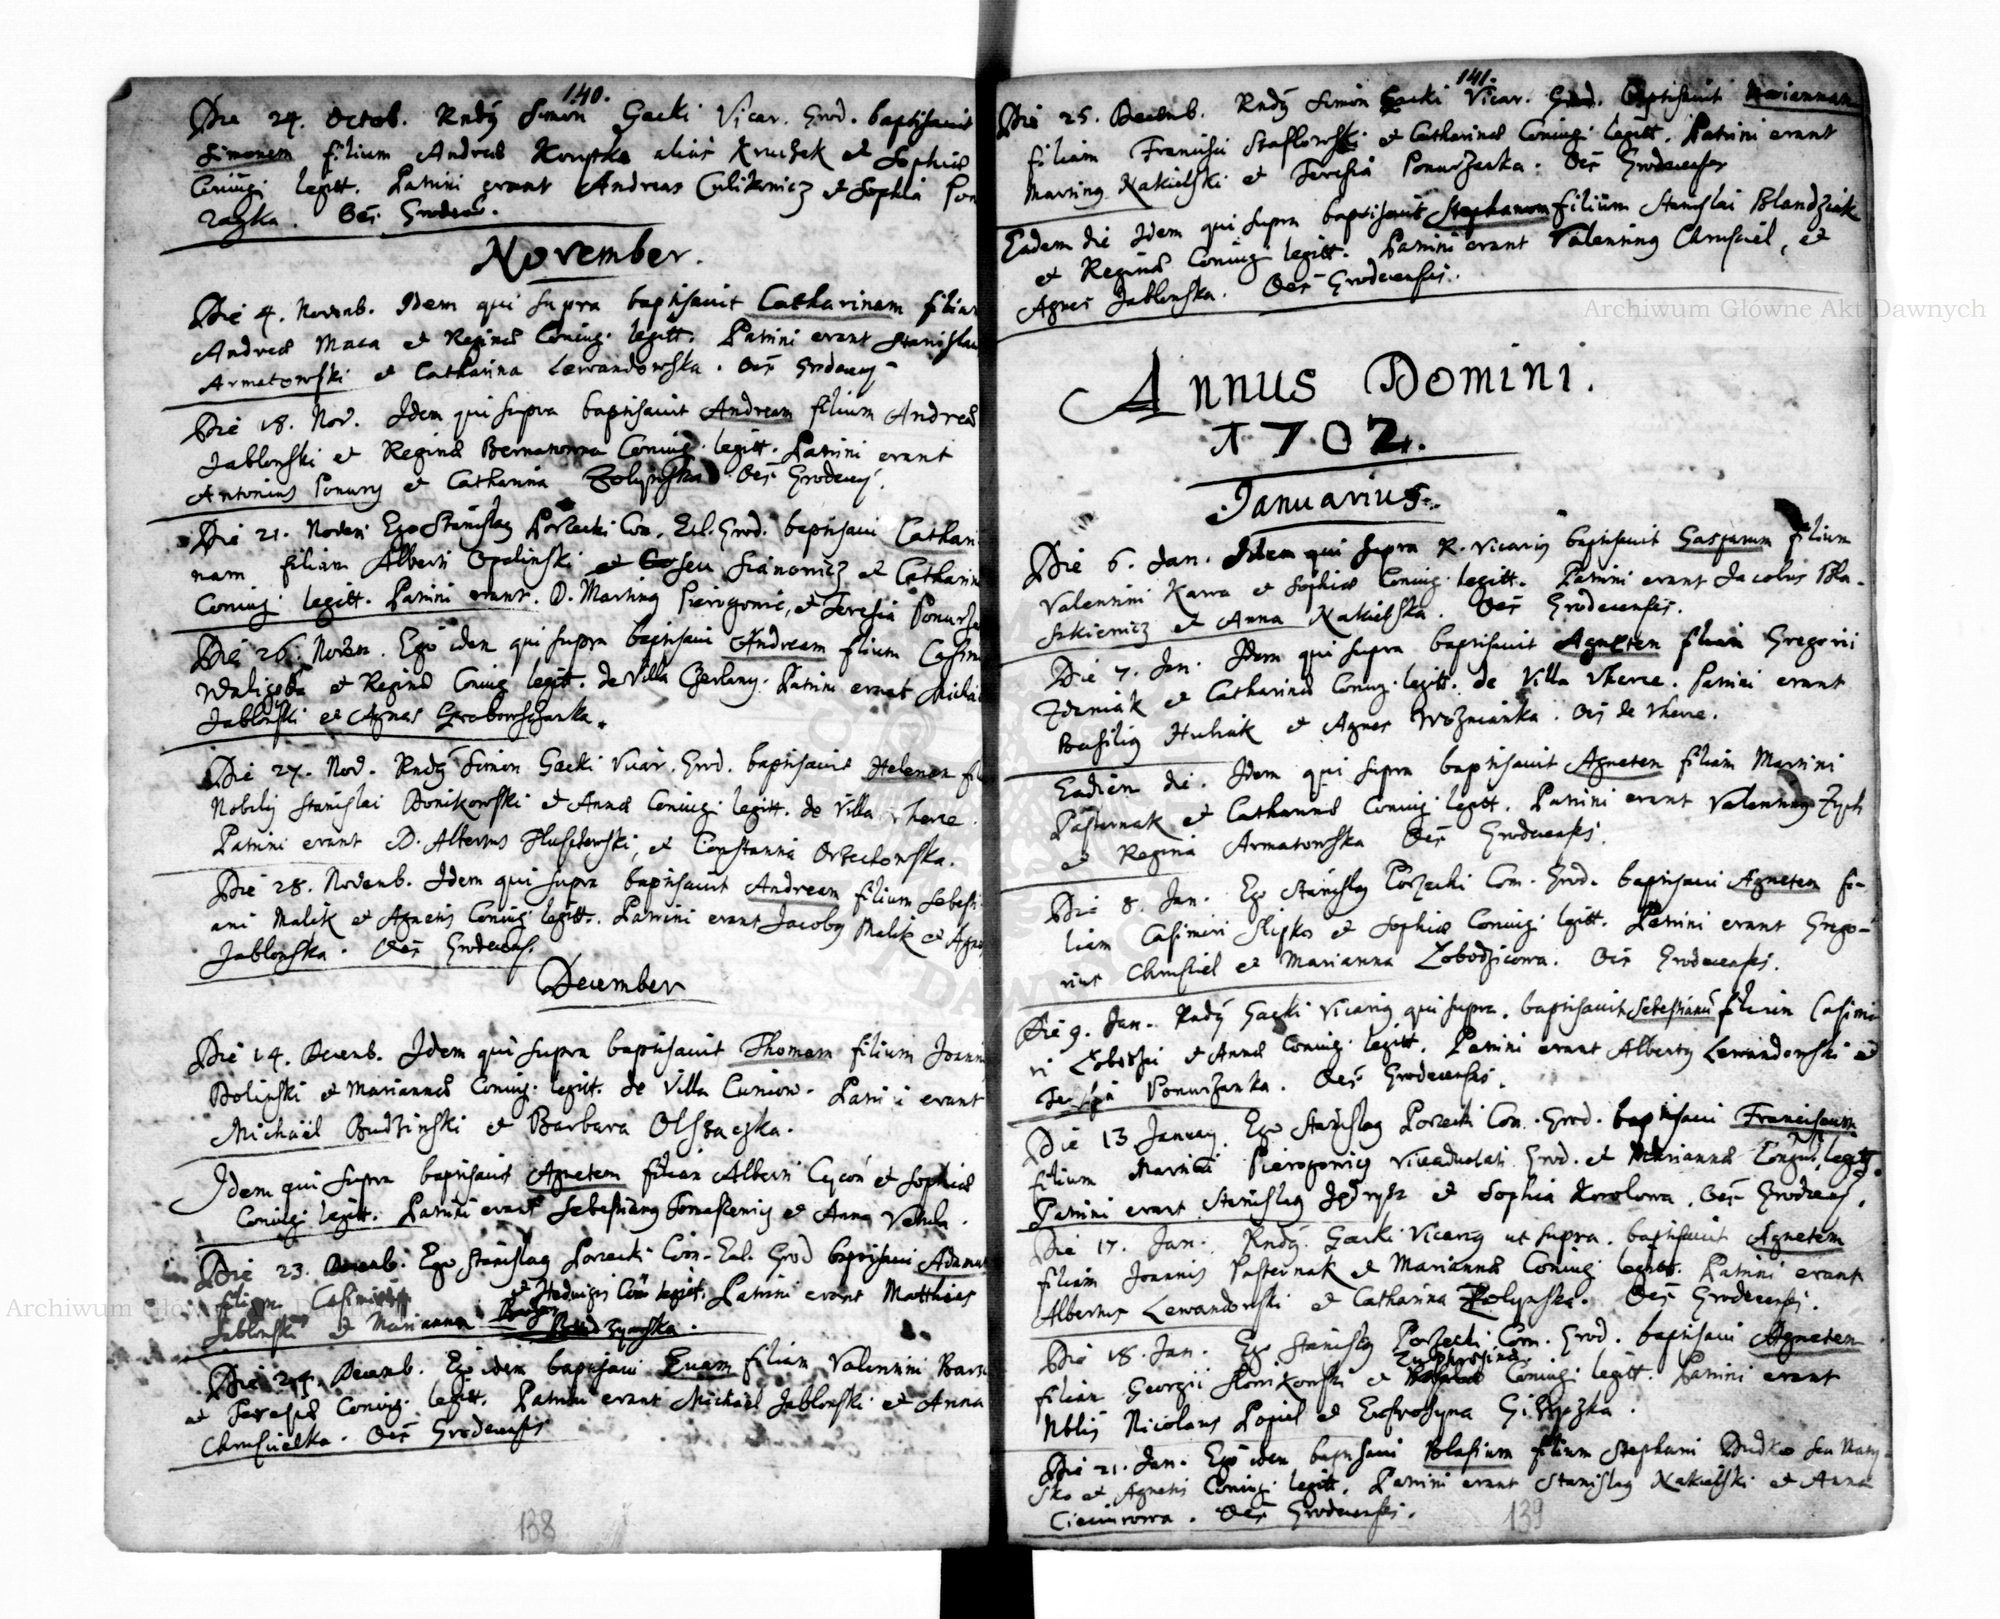 140.
Die 24. Octob. Rndg Simon Gacki Vicar. Grod. baptisavit
Simonem filium Andreæ Krupka alias Kruczek et Sophiæ
Coniugi legitt. Patrini erant Andreas Culikowicz et Sophia Pon
Oes Grodec.
November.
Die 4. Novemb. Idem qui supra baptisavit Catharinam filiam
Andreæ Maca et Reginæ Coniug. legitt. Patrini erant Stanislau
Armatowski et Catharina Lewandowska. Oes Grodecen
Die 18. Nov. Idem qui supra baptisavit Andream filium Andreæ
Jablonski et Reginæ Bernatowna Coniug. legitt. Patrini erant
Antonius Ponury et Catharina Oes Grodecen.
Die 21. Novem Ego Stanislag Porzecki Com. Ecl. Grod. baptisavi Cathari
nam filiam Alberti Opalinski seu Sianowicz et Catharin
Coniug. legitt. Patrini erant. D. Marting Pierogowic, et Teresia Ponurza
Die 26. Novem. Ego idem qui supra baptisavi Andream filium Casimi
Waligora et Reginæ Coniug legitt. de Villa Czerlany. Patrini erant Michael
Jablonski et Agnes Grabowszczanka.
Die 27. Nov. Rndg Simon Gacki Vicar. Grod. baptisavit Helenam fi
Nobilis Stanislai Bonikowski et Annæ Coniugi legitt. de Villa Vherce.
Patrini erant D. Albertus et Constantia Orzechowska.
Die 28. Novemb. Idem qui supra baptisavit Andream filium Sebasti
ani Malik et Agnetis Coniugi legitt. Patrini erant Jacobg Malik et Agne
Jablonska. Oes Grodecens.
December
Die 14. Decemb. Idem qui supra baptisavit Thomam filium Joannis
Bolinski et Mariannæ Coniug. legitt. de Villa Cuniow. Patrini erant
Michaël Budzinski et Barbara Olszaczka.
Idem qui supra baptisavit Agnetem filiam Alberti Cycoń et Sophiæ
Coniugi legitt. Patrini erant Sebastiang Tomaszewicz et Anna Vetula.
Die 23. Decemb. Ego Stanislag Porzecki Com. Ecl. Grod baptisavi Adamum
filium Casimiri et Hedwigis Con legitt. Patrini erant Matthias
Jablonski et Marianna
Die 24. Decemb. Ego idem baptisavi Evam filiam Valentini
et Teresiæ Coniug. legitt. Patrini erant Michaël Jablonski et Anna
Chruscielka. Oes Grodecensis
138
141.
Die 25. Decemb. Rndg Simon Gacki Vicar. Grod. Baptisavit Mariannam
filiam Francisci Staflowski et Catharinæ Coniugi legitt. Patrini erant
Marting Nakielski et Teresia Ponurzanka. Oes Grodecenses
Eadem die Idem qui supra baptisavit Stephanum filium Stanislai Blandziak
et Reginæ Coniug legitt. Patrini erant Valenting Chrusciel, et
Agnes Jablonska. Oes Grodecensis.
Annus Domini.
1702.
Ianuarius.
Die 6. Jan. Idem qui supra R. Vicarig baptisavit Gasparum filium
Valentini Kawa et Sophiæ Coniug. legitt. Patrini erant Jacobus Bla-
szkiewicz et Anna Nakielska. Oes Grodecensis.
Die 7. Jan. Idem qui supra baptisavit Agnetem filiam Gregorii
Zduniak et Catharinæ Coniug. legitt. de Villa Vherce. Patrini erant
Basilig Huliak et Agnes Woznianka. Oes de Vherce.
Eadem die. Idem qui supra baptisavit Agnetem filiam Martini
Pasternak et Catharinæ Coniug. legitt. Patrini erant Valenting Zych
et Regina Armatowska Oes Grodecensis.
Die 8. Jan. Ego Stanislag Porzecki Com. Grod. baptisavi Agnetem fi-
liam Casimiri Slipko et Sophiæ Coniugi legitt. Patrini erant Grego-
rius Chrusciel et Marianna Lobodzicowa. Oes Grodecensis.
Die 9. Jan. Rndg Gacki Vicarig qui supra, baptisavit Sebastianũ filium Casimi
ri et Annæ Coniug. legitt. Patrini erant Albertg Lewandowski et
Teresia Ponurzanka. Oes Grodecensis.
Die 13 January. Ego Stanislag Porzecki Com. Grod. baptisavi Franciscum
filium Martini Pierogowicz Viceadvocati Grod. et Mariannæ Coniug. legitt.
Patrini erant Stanislag Jędrysz et Sophia Krolowa. Oes Grodecens.
Die 17. Jan. Rndg. Gacki Vicarig ut supra. baptisavit Agnetem
filiam Joannis Pasternak et Mariannæ Coniug legitt. Patrini erant
Albertus Lewandowski et Catharina Oes Grodecensis.
Die 18. Jan. Ego Stanislg Porzecki Com. Grod. baptisavi Agnetem
filiam Georgii Slonikowski et Euphrosinæ Coniugi legitt. Patrini erant
Nblis Nicolaus Popiel et Eufrosyna
Die 21. Jan. Ego idem baptisavi Blasium filium Stephani Dudko seu Maty-
sko et Agnetis Coniugi legitt. Patrini erant Stanislag Nakielski et Anna
Oes Grodecensis.
139
Archiwum Główne Akt Dawnych
Archiwum Główne Akt Dawnych